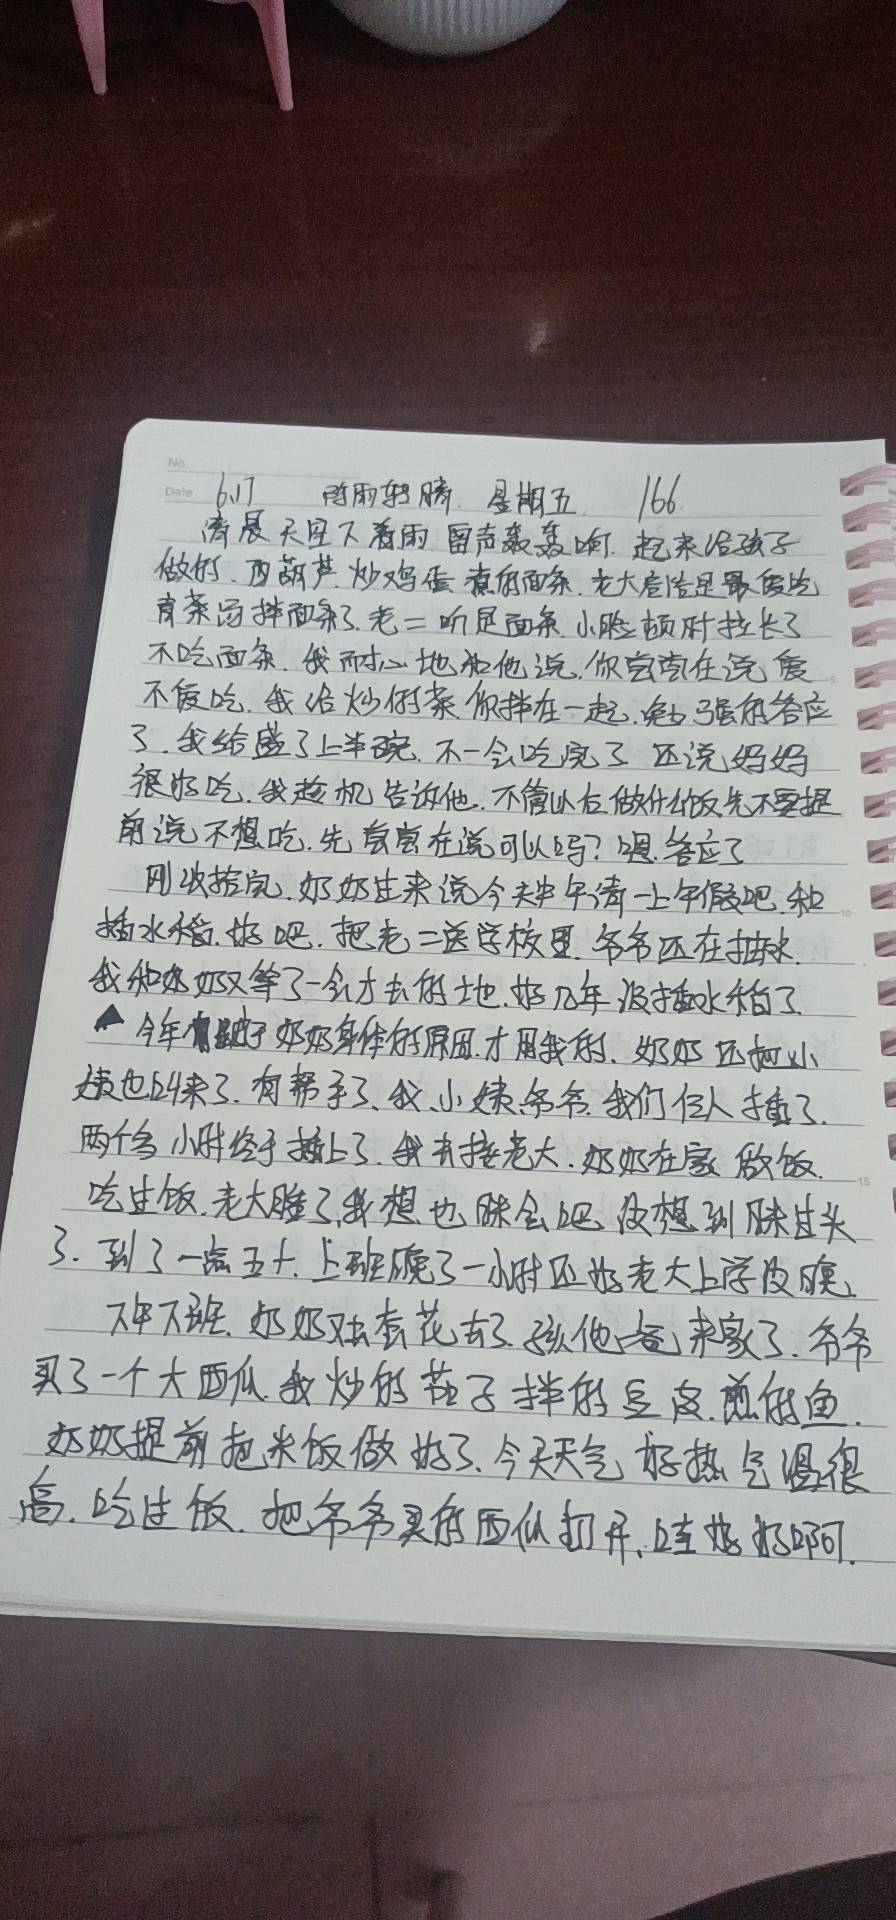 No.
Date 6.17 阵雨转晴. 星期五. 166
清晨天空下着雨 雷声轰轰响. 起来给孩子
做的. 西葫芦. 炒鸡蛋. 煮的面条. 老大

青菜汤拌面条了. 老二一听是面条. 小脸顿时拉长了
不吃面条. 我耐心地和他说. 你尝尝在说爱
不爱吃. 我给炒的菜. 你拌在一起. 勉强的答应
了. 我给盛了上半碗. 不一会吃完了 还说妈妈
很好吃. 我趁机告诉他. 不管以后做什么饭先不要提
前说不想吃. 先尝尝在说可以吗? 嗯. 答应了
刚收拾完. 奶奶过来说今天 请一上午假吧. 和
插水稻. 好吧. 把老二送学校里. 爷爷还在抽水.
我和奶奶又等了一会才去的地. 好几年没插水稻了.
今年 奶奶身体的原因. 才用我的. 奶奶还把小
姨也叫来了. 有帮手了. 我、小姨、爷爷. 我们仨人插了.
两个多小时终于插上了. 我去接老大. 奶奶在家做饭.
吃过饭. 老大睡了, 我想也眯会吧 没想到眯过头
了. 到了一点五十. 上班晚了一小时还好老大上学没晚.
下午下班. 奶奶 花去了. 孩他爸来家了. 爷爷
买了一个大西瓜. 我炒的茄子拌的豆皮. 煎的鱼.
奶奶提前把米饭做好了. 今天天气好热气温很
高. 吃过饭. 把爷爷买的西瓜打开、哇 好好啊.
15